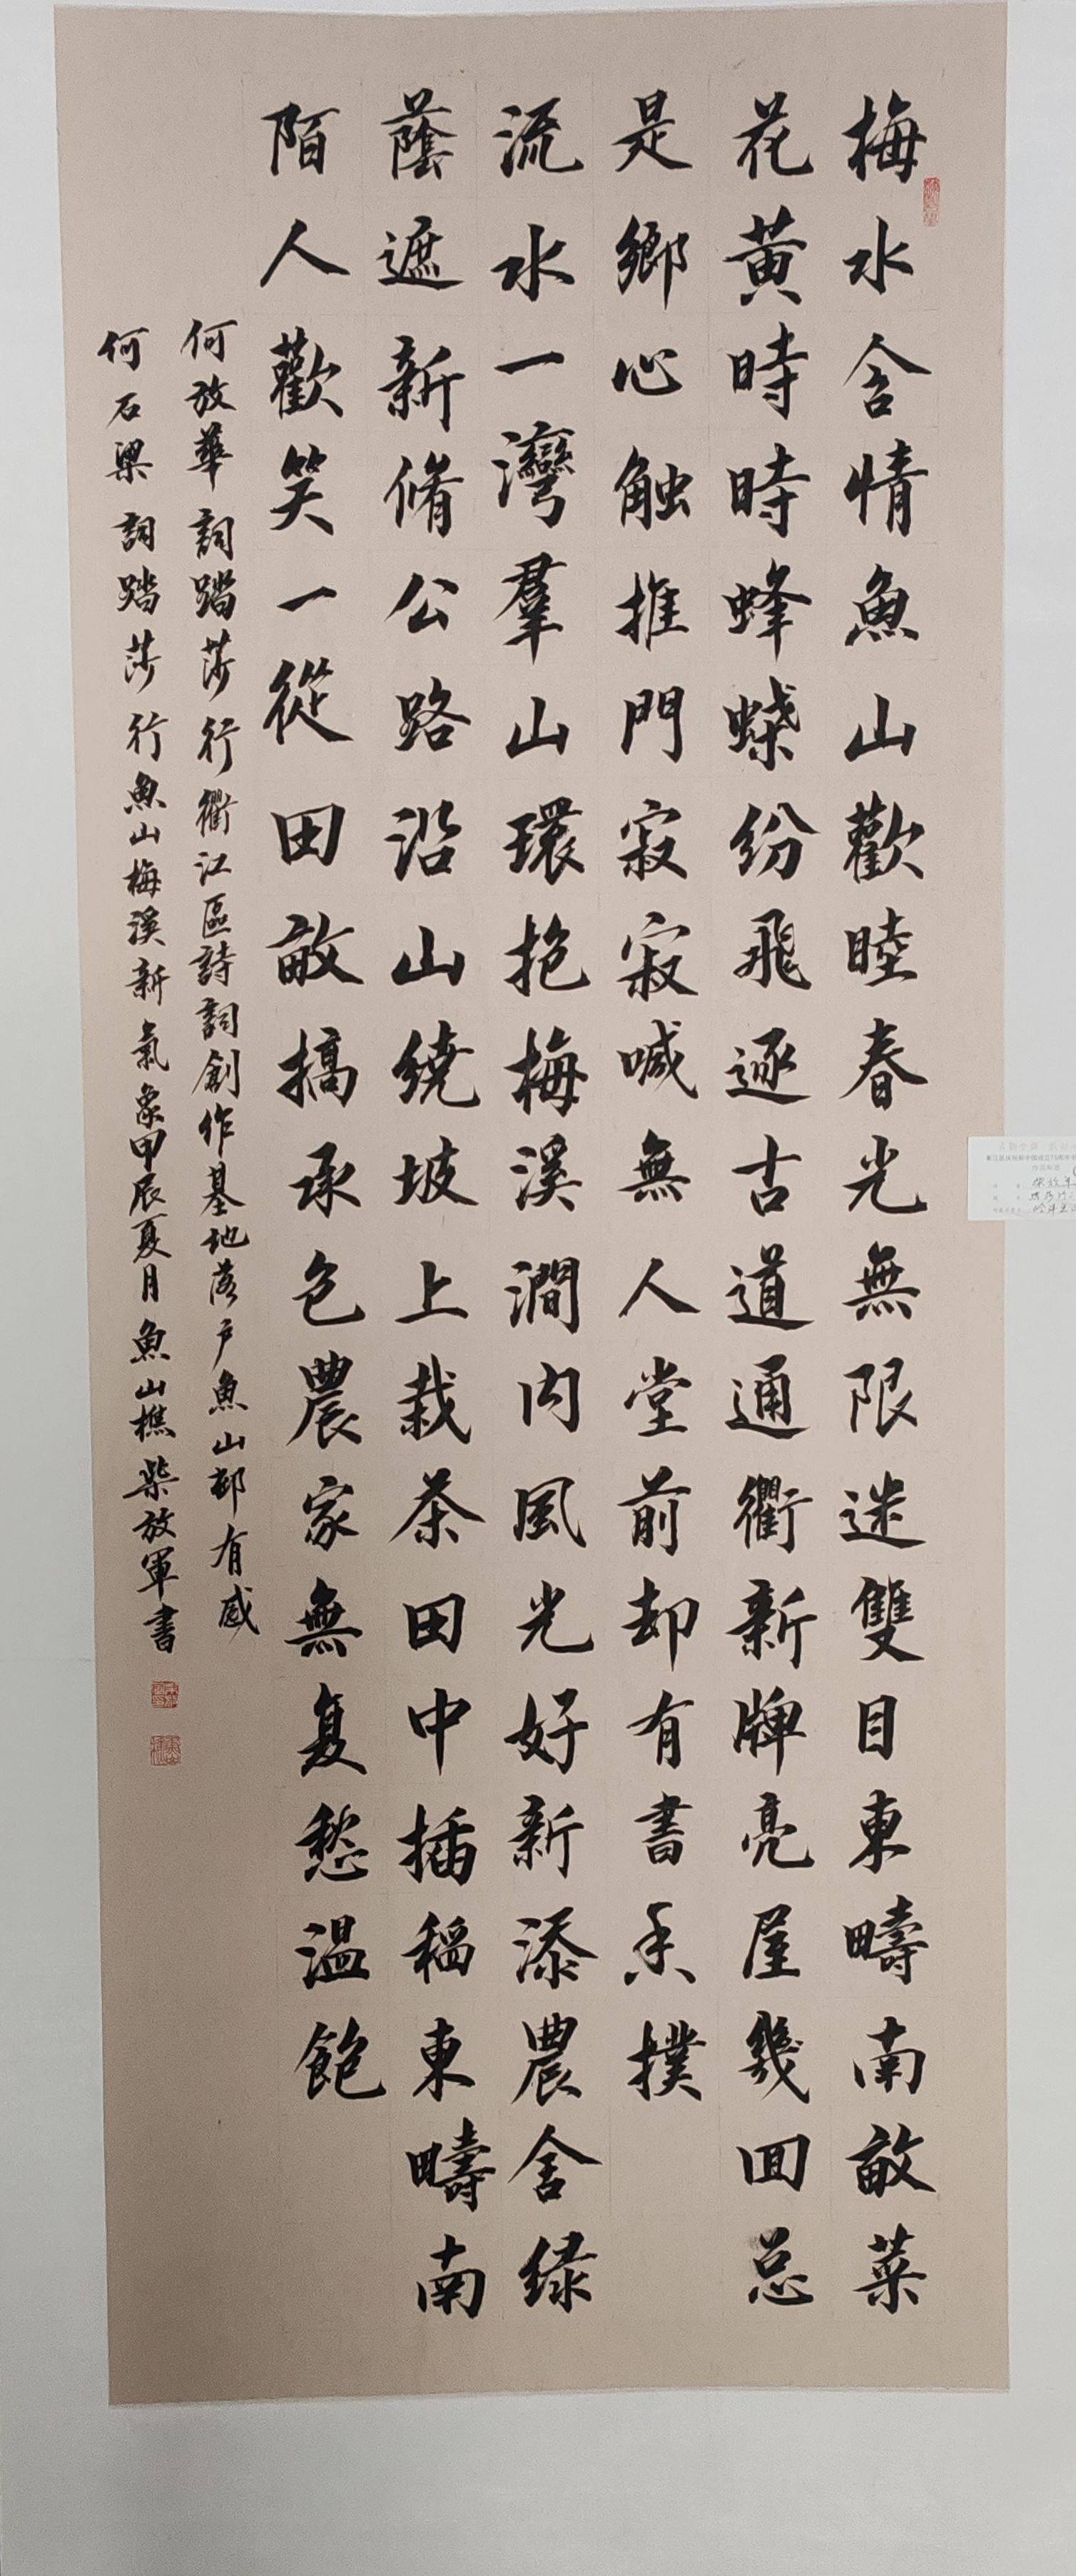 梅水含情魚山歡睦春光無限迷雙目東疇南畝菜
花黄時時蜂蝶纷飛逐古道通衢新牌亮屋幾回总
是鄉心触推門寂寂喊無人堂前却有書香撲
流水一灣羣山環抱梅溪澗内風光好新添農舍绿
蔭遮新脩公路沿山繞坡上栽茶田中插稻東疇南
陌人歡笑一從田畝搞承包農家無复愁温飽
何放華詞踏莎行衢江區詩詞創作基地落户魚山邨有感
何石梁詞踏莎行魚山梅溪新氣象甲辰夏月魚山樵柴放軍書